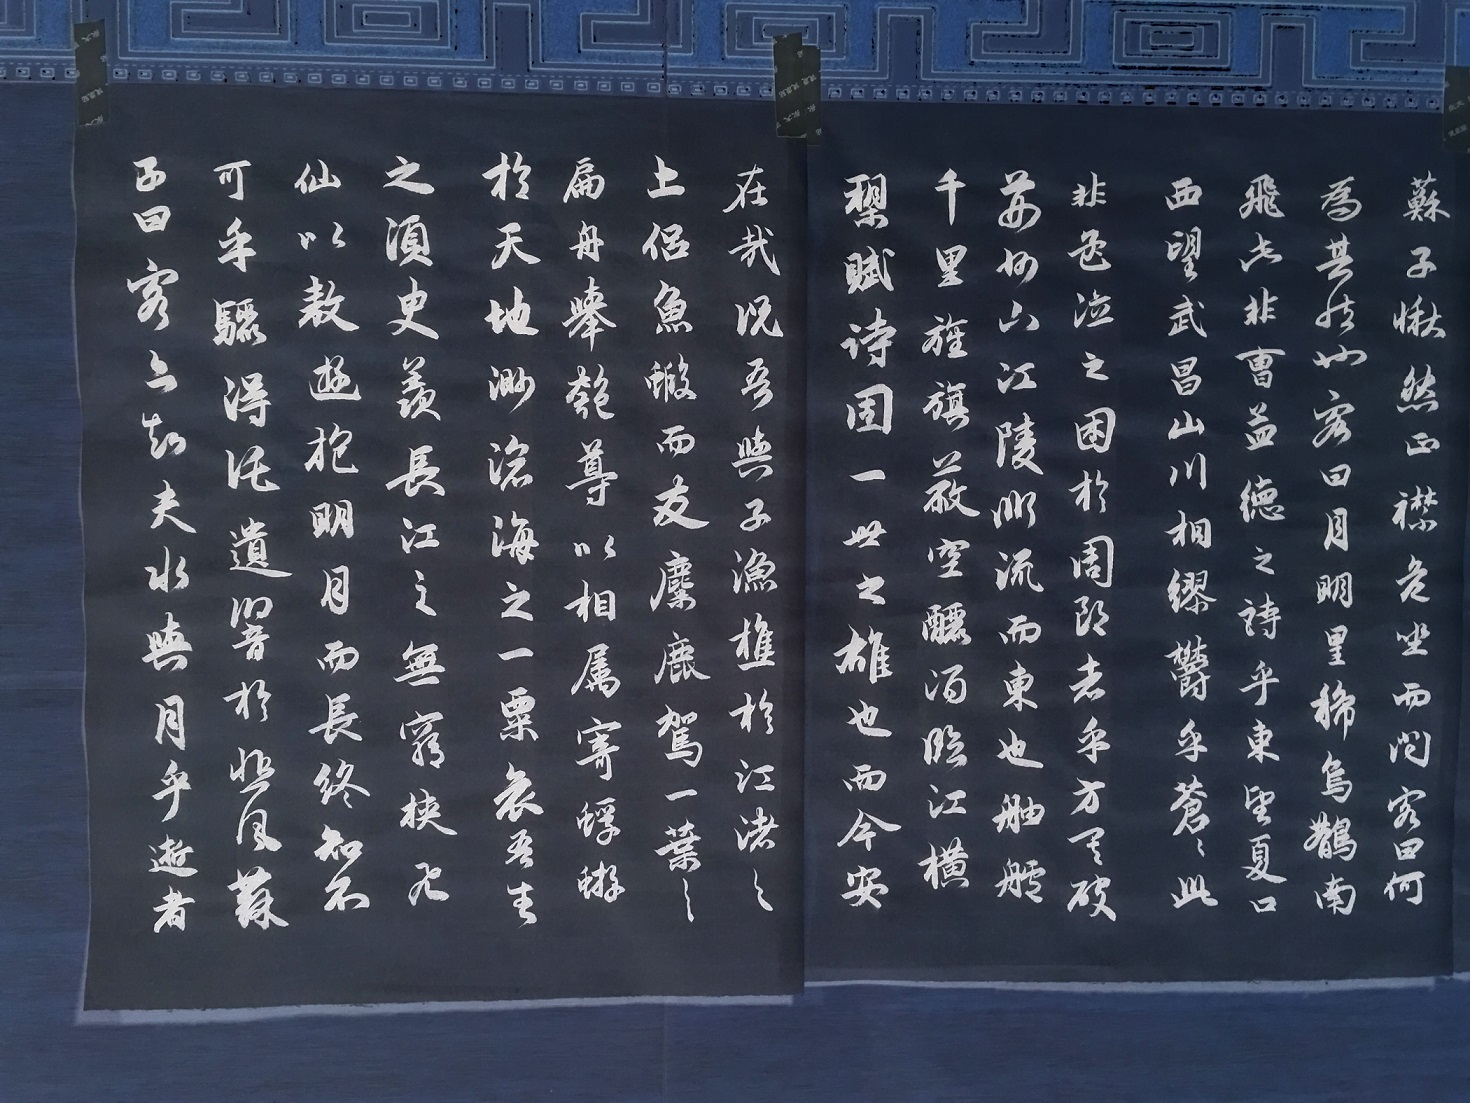 蘇子愀然正襟危坐而問客曰何
為其然也客曰月明星稀烏鵲南
飛此非曹孟德之詩乎東望夏口
西望武昌山川相繆鬱乎蒼〻此
非孟德之困於周郎者乎方其破
荊州下江陵順流而東也舳艫
千里旌旗蔽空釃酒臨江橫
槊賦詩固一世之雄也而今安
在哉況吾與子漁樵於江渚之
上侶魚蝦而友麋鹿駕一葉之
扁舟舉匏尊以相屬寄蜉蝣
於天地渺滄海之一粟哀吾生
之須臾羨長江之無窮挾飛
仙以遨遊抱明月而長終知不
可乎驟得託遺響於悲風蘇
子曰客亦知夫水與月乎逝者